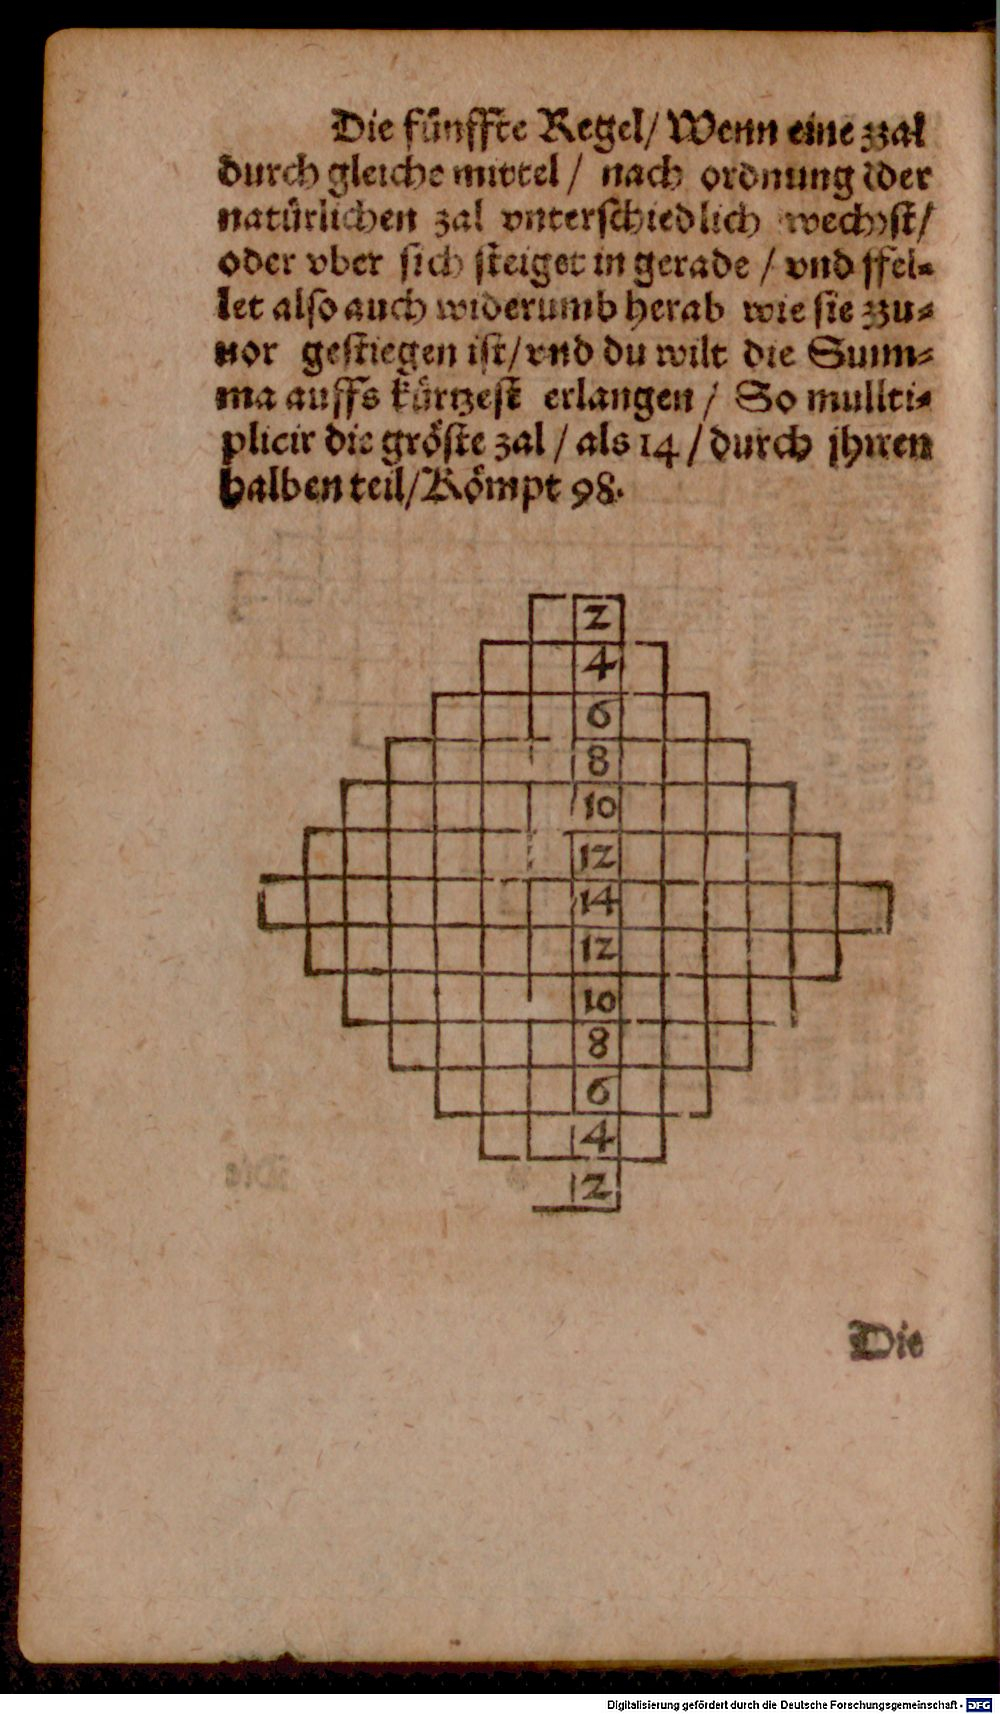 Die fünffte Regel/ Wenn eine zzal
durch gleiche mittel / nach ordnung der
natürlichen zal vnterschiedlich wechst/
oder vber sich steiget in gerade / vnd ffel-
let also auch widerumb herab wie sie zzu-
uor gestiegen ist/ vnd du wilt die Summ-
ma auffs kürtzest erlangen / So mullti-
plicir die gröste zal / als 14 / durch jhren
halben teil/ Kömpt 98.
2
4
6
8
10
12
14
12
10
8
6
4
2
Die
Digitalisierung gefördert durch die Deutsche Forschungsgemeinschaft - DFG